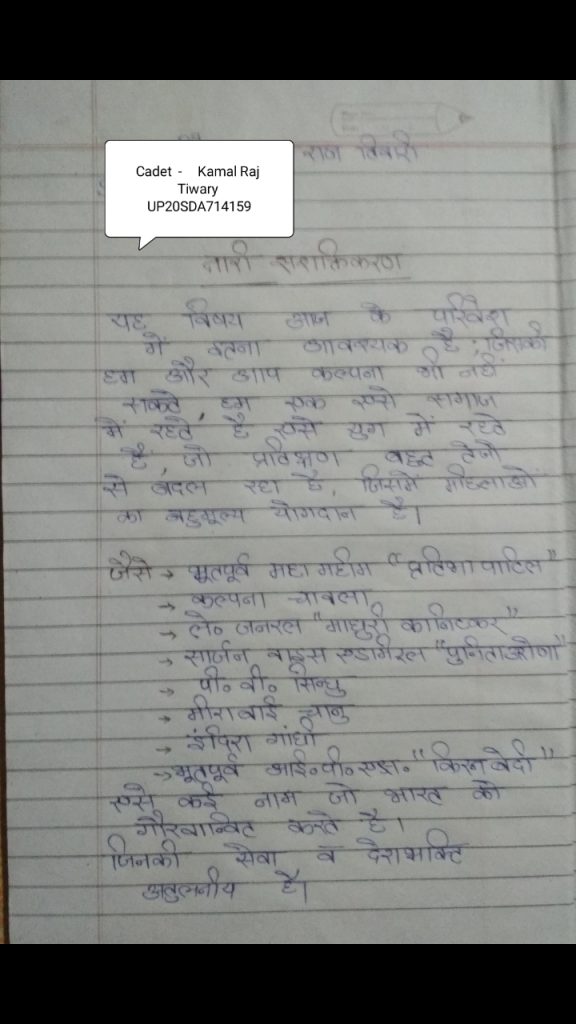 राज तिवारी
Cadet - Kamal Raj
Tiwary
UP20SDA714159
नारी सशक्तिकरण
यह विषय आज के परिवेश
में इतना आवश्यक है, जिसकी
हम और आप कल्पना भी नहीं
सकते, हम एक ऐसे समाज
में रहते है ऐसे युग में रहते
है, जो प्रतिक्षण बहुत तेजी
से बदल रहा है, जिसमें महिलाओं
का बहुमूल्य योगदान है।
जैसे → भूतपूर्व महामहीम "प्रतिभा पाटिल"
→ कल्पना चावला
→ ले० जनरल "माधुरी कानिटकर"
→ सार्जन वाइस एडमिरल "पुनिता अरोणा"
→ पी० वी० सिन्धु
→ मीरा बाई चानु
→ इंदिरा गांधी
→ भूतपूर्व आई०पी०एस०. "किरन बेदी"
ऐसे कई नाम जो भारत को
गौरवान्वित करते है।
जिनकी सेवा व देशभक्ति
अतुलनीय है।